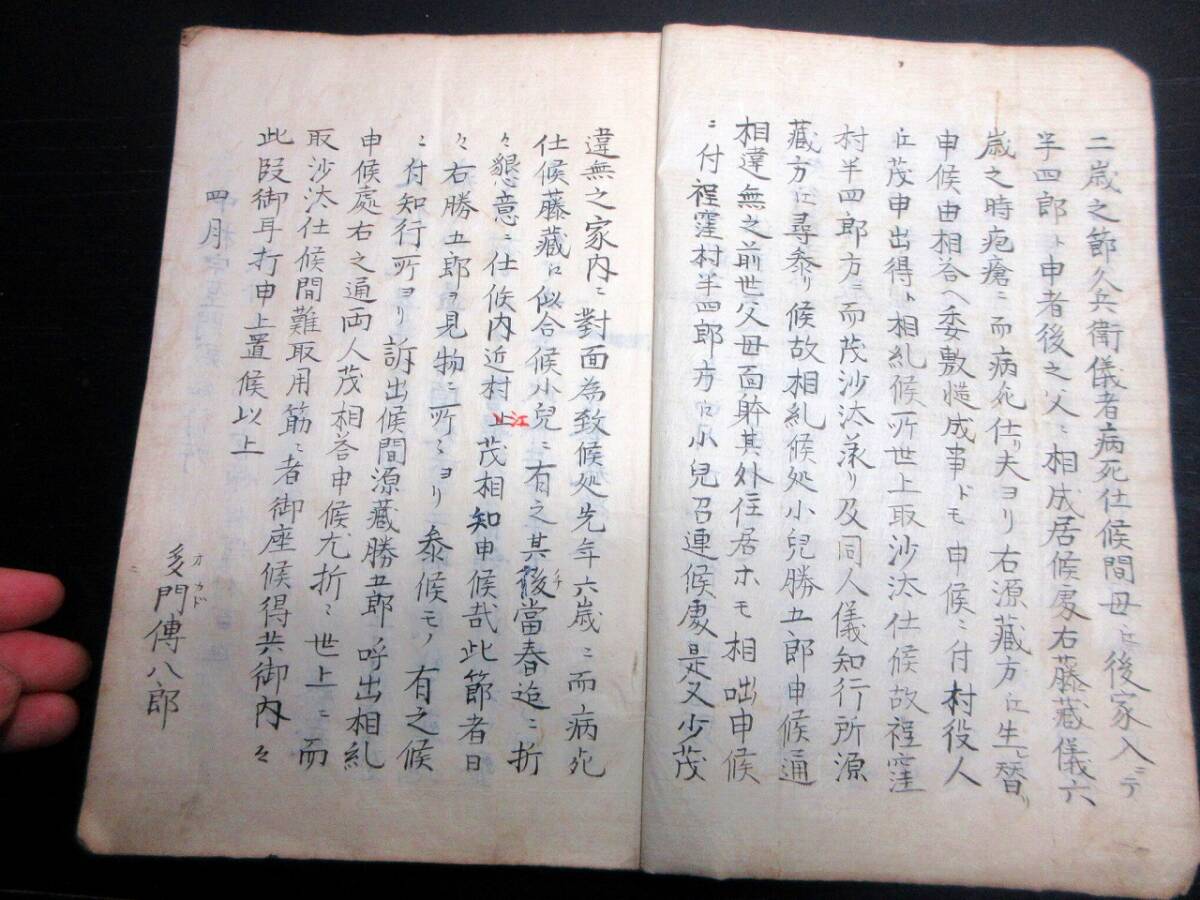 二歳之節久兵衛儀者病死仕候間母江後家入ニテ
半四郎ト申者後之父ニ相成居候處右藤藏儀六
歳之時疱瘡ニ而病死仕リ夫ヨリ右源藏方江生レ替リ
申候由相答ヘ委敷慥成事ドモ申候ニ付村役人
江茂申出得ト相糺候所世上取沙汰仕候故程窪
村半四郎方ニ而茂沙汰承リ及同人儀知行所源
藏方江尋参リ候故相糺候処小兒勝五郎申候通
相違無之前世父母面躰其外住居ホモ相咄申候
ニ付程窪村半四郎方江小兒召連候處是又少茂
違無之家内ニ對面為致候処先年六歳ニ而病死
仕候藤藏江似合候小兒ニ有之其後チ當春迄ニ折
々懇意ニ仕候内近村江茂相知申候哉此節者日
々右勝五郎ヲ見物ニ所々ヨリ参候モノ有之候
ニ付知行所ヨリ訴出候間源藏勝五郎呼出相糺
申候處右之通両人茂相答申候尤折ニ世上ニ而
取沙汰仕候間難取用筋ニ者御座候得共御内々
此段御耳打申上置候以上
四月
多門傳八郎
オカド